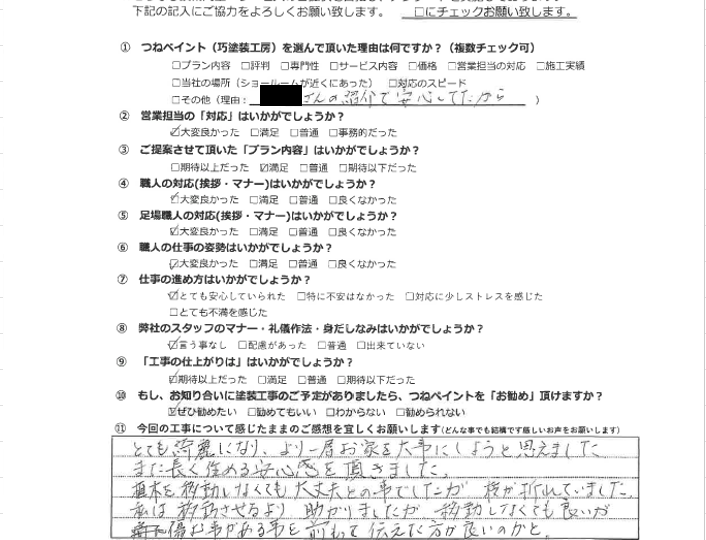 下記の記入にご協力をよろしくお願い致します。 □にチェックお願い致します。
① つねペイント（巧塗装工房）を選んで頂いた理由は何ですか？（複数チェック可）
□プラン内容 □評判 □専門性 □サービス内容 □価格 □営業担当の対応 □施工実績
□当社の場所（ショールームが近くにあった） □対応のスピード
□その他（理由： さんの紹介で安心してたから ）
② 営業担当の「対応」はいかがでしょうか？
☑大変良かった □満足 □普通 □事務的だった
③ ご提案させて頂いた「プラン内容」はいかがでしょうか？
□期待以上だった ☑満足 □普通 □期待以下だった
④ 職人の対応(挨拶・マナー)はいかがでしょうか？
☑大変良かった □満足 □普通 □良くなかった
⑤ 足場職人の対応(挨拶・マナー)はいかがでしょうか？
☑大変良かった □満足 □普通 □良くなかった
⑥ 職人の仕事の姿勢はいかがでしょうか？
☑大変良かった □満足 □普通 □良くなかった
⑦ 仕事の進め方はいかがでしょうか？
☑とても安心していられた □特に不安はなかった □対応に少しストレスを感じた
□とても不満を感じた
⑧ 弊社のスタッフのマナー・礼儀作法・身だしなみはいかがでしょうか？
☑言う事なし □配慮があった □普通 □出来ていない
⑨ 「工事の仕上がりは」はいかがでしょうか？
☑期待以上だった □満足 □普通 □期待以下だった
⑩ もし、お知り合いに塗装工事のご予定がありましたら、つねペイントを「お勧め」頂けますか？
☑ぜひ勧めたい □勧めてもいい □わからない □勧められない
⑪ 今回の工事について感じたままのご感想を宜しくお願いします(どんな事でも結構です厳しいお声をお願いします)
とても綺麗になり、より一層お家を大事にしようと思えました
まだ長く住める安心感を頂きました。
植木を移動しなくても大丈夫との事でしたが 枝が折れていました。
私は移動させるより 助かりましたが 移動しなくても良いが
傷む事がある事を前もって伝えた方が良いのかと。